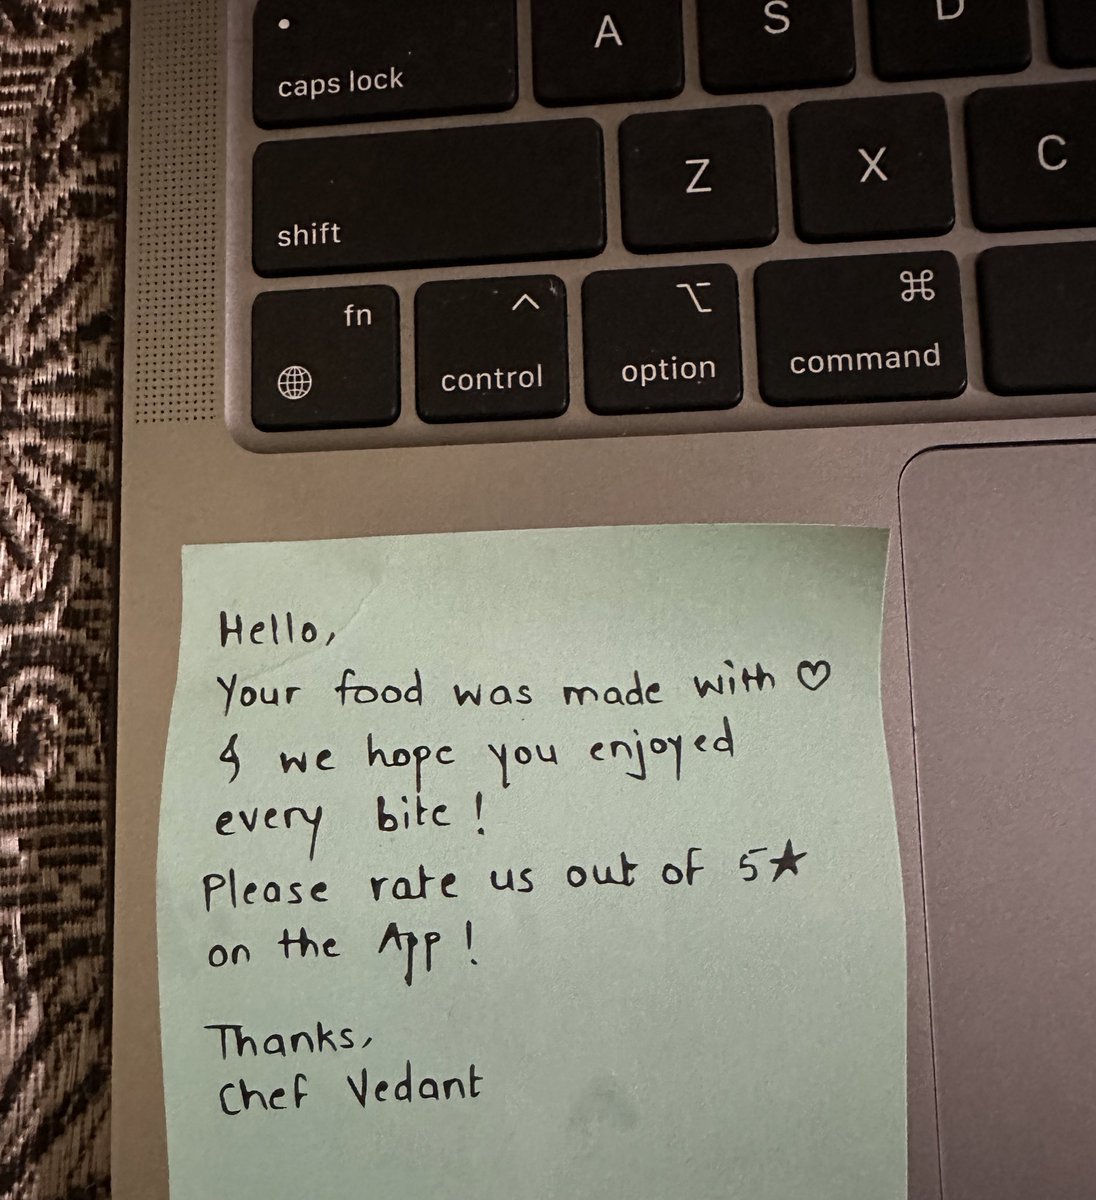 A S D
caps lock
Z X C
shift
fn ^ ⌥ ⌘
control option command
Hello,
Your food was made with ♡
& we hope you enjoyed
every bite!
Please rate us out of 5★
on the App!
Thanks,
Chef Vedant